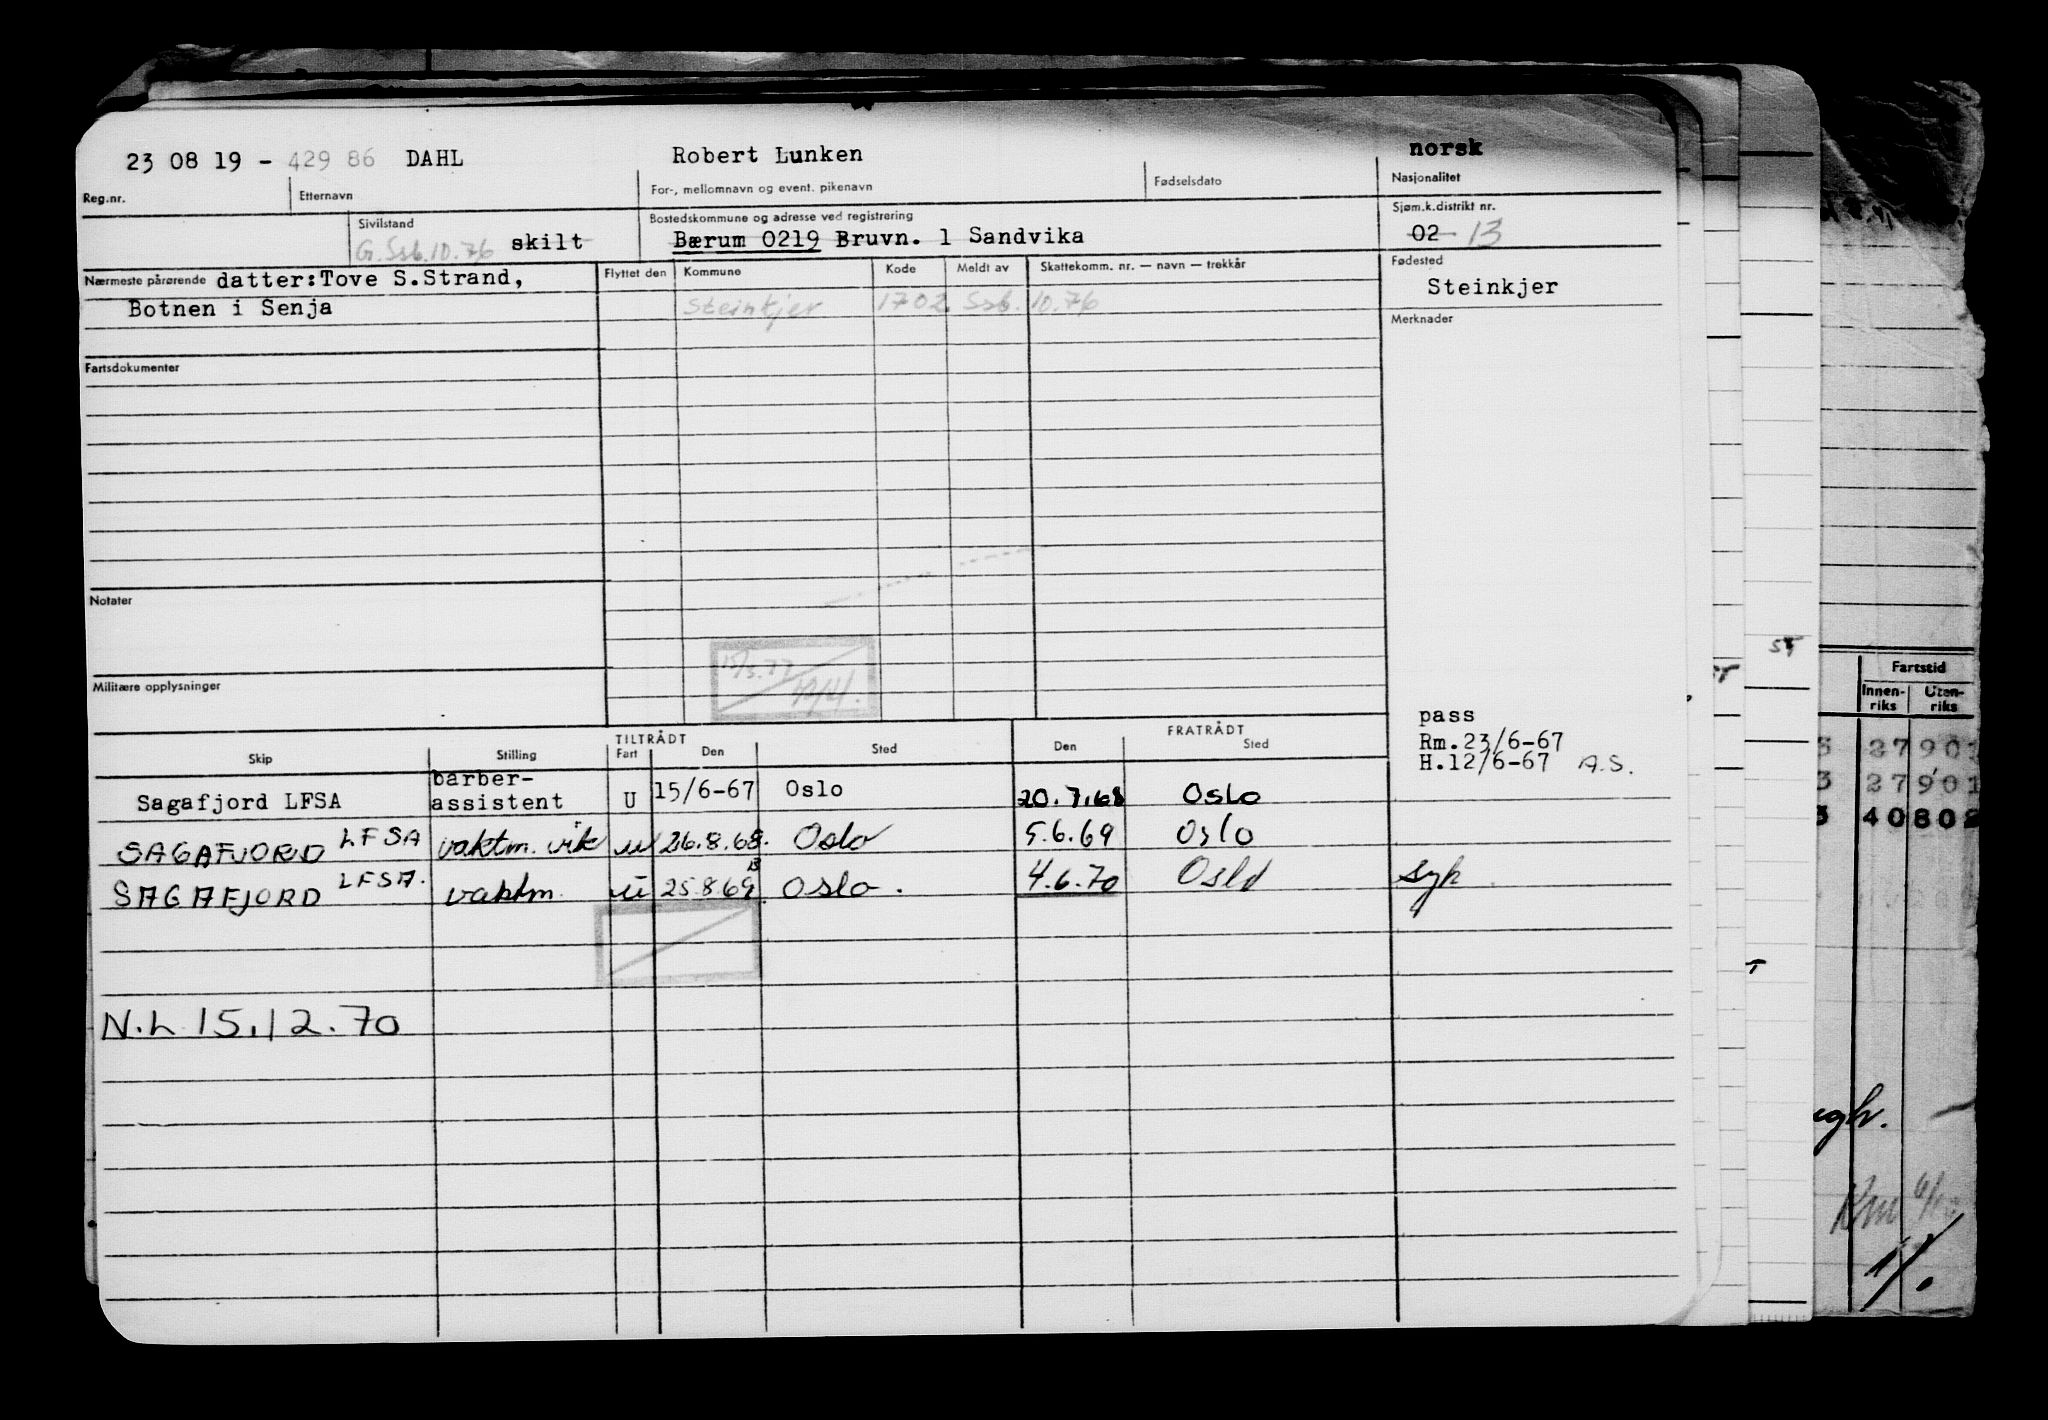 23 08 19 - 429 86 DAHL Robert Lunken norsk
Reg.nr. Etternavn For-, mellomnavn og event. pikenavn Fødselsdato Nasjonalitet
Sivilstand Bostedskommune og adresse ved registrering Sjøm.k.distrikt nr.
G. Ssb. 10.76 skilt Bærum 0219 Bruvn. 1 Sandvika 02 13
Nærmeste pårørende datter:Tove S.Strand, Flyttet den Kommune Kode Meldt av Skattekomm. nr. — navn — trekkår Fødested
Botnen i Senja Steinkjer 1702 Ssb. 10.76 Steinkjer
Merknader
Fartsdokumenter
Notater
15/3.77
Militære opplysninger
pass
Rm.23/6-67
H.12/6-67 A.S.
TILTRÅDT FRATRÅDT
Skip Stilling Fart Den Sted Den Sted
Sagafjord LFSA barber-
assistent U 15/6-67 Oslo 20.7.68 Oslo
SAGAFJORD LFSA vaktm. vik u 26.8.68. Oslo 5.6.69 Oslo
SAGAFJORD LFSA. vaktm. u 25.8.69 Oslo. 4.6.70 Oslo syk
N.L 15.12.70
Fartstid
Innen-
riks
Uten-
riks
3 27901
3 27901
3 40802